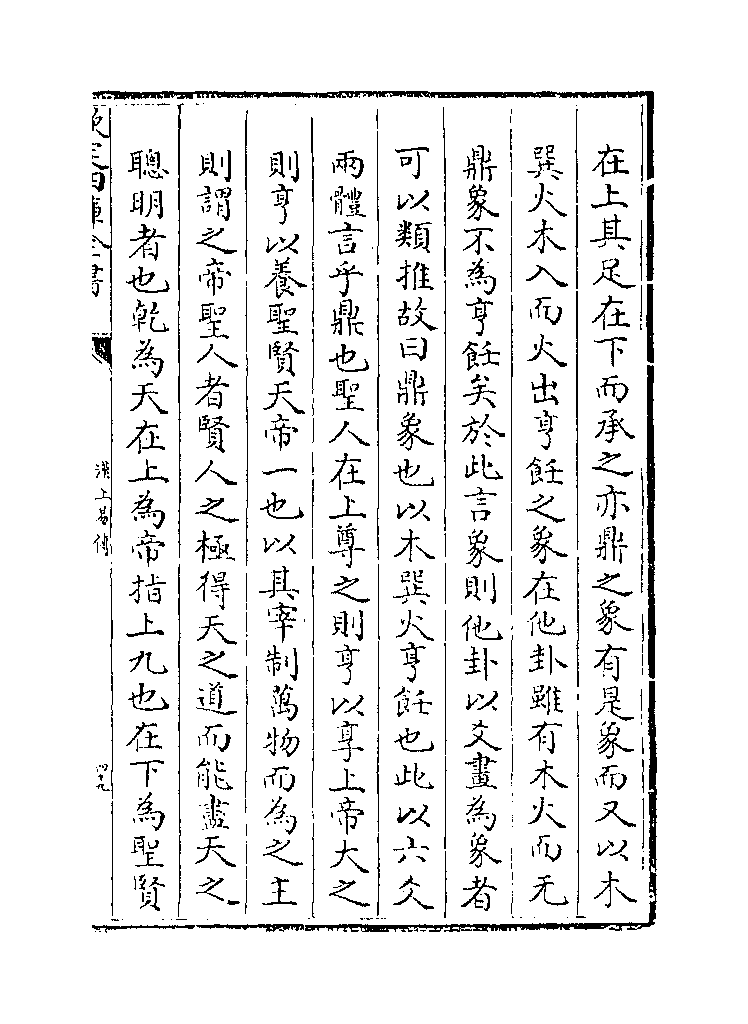 在上其足在下而承之亦鼎之象有是象而又以木
巽火木入而火出亨飪之象在他卦雖有木火而无
鼎象不為亨飪矣於此言象則他卦以爻畫為象者
可以類推故曰鼎象也以木巽火亨飪也此以六爻
兩體言乎鼎也聖人在上尊之則亨以享上帝大之
則亨以養聖賢天帝一也以其宰制萬物而為之主
則謂之帝聖人者賢人之極得天之道而能盡天之
聰明者也乾為天在上為帝指上九也在下為聖賢
欽定四庫全書
漢上易傳
四九